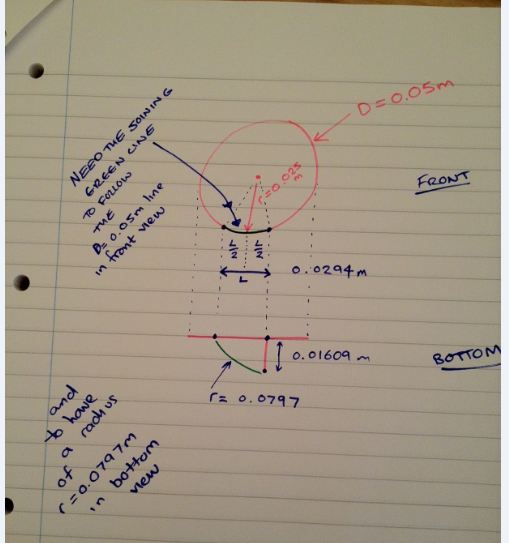 D = 0.05m
NEED THE JOINING
GREEN LINE
TO FOLLOW
THE
D = 0.05m line
in front view
r = 0.025
m
FRONT
L/2 L/2
L
0.0294m
0.01609 m
BOTTOM
r = 0.0797
and
to have
of a radius
r = 0.0797m
in bottom
view